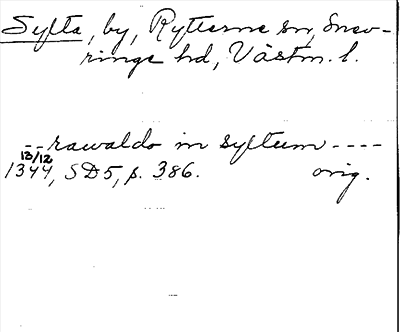 Sylta, by, Rytterne sn, Snev-
ringe hd, Västm. l.
--rawaldo in syltum ----
13/12
1344, SD5, p. 386. orig.